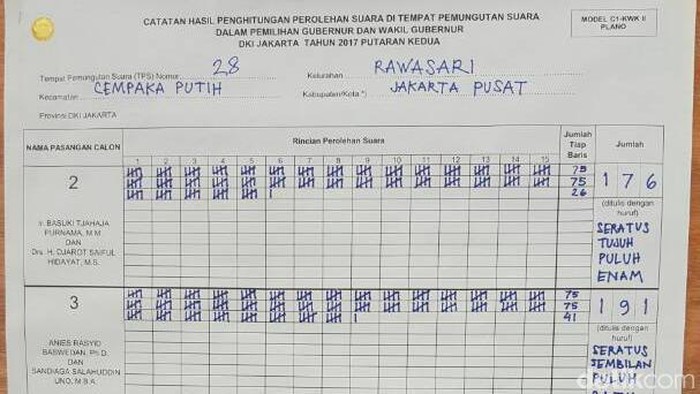 CATATAN HASIL PENGHITUNGAN PEROLEHAN SUARA DI TEMPAT PEMUNGUTAN SUARA
DALAM PEMILIHAN GUBERNUR DAN WAKIL GUBERNUR
DKI JAKARTA TAHUN 2017 PUTARAN KEDUA
MODEL C1-KWK II
PLANO
Tempat Pemungutan Suara (TPS) Nomor 28 Kelurahan RAWASARI
Kecamatan CEMPAKA PUTIH Kabupaten/Kota *) JAKARTA PUSAT
Provinsi DKI JAKARTA
NAMA PASANGAN CALON Rincian Perolehan Suara Jumlah Tiap Baris Jumlah
1 2 3 4 5 6 7 8 9 10 11 12 13 14 15
2
75
75
26
176
(ditulis dengan huruf)
SERATUS
TUJUH
PULUH
ENAM
Ir. BASUKI TJAHAJA
PURNAMA, M.M
DAN
Drs. H. DJAROT SAIFUL
HIDAYAT, M.S.
3
75
75
41
191
(ditulis dengan huruf)
SERATUS
SEMBILAN
PULUH
ANIES RASYID
BASWEDAN, Ph.D.
DAN
SANDIAGA SALAHUDDIN
UNO, M.B.A.
detikcom